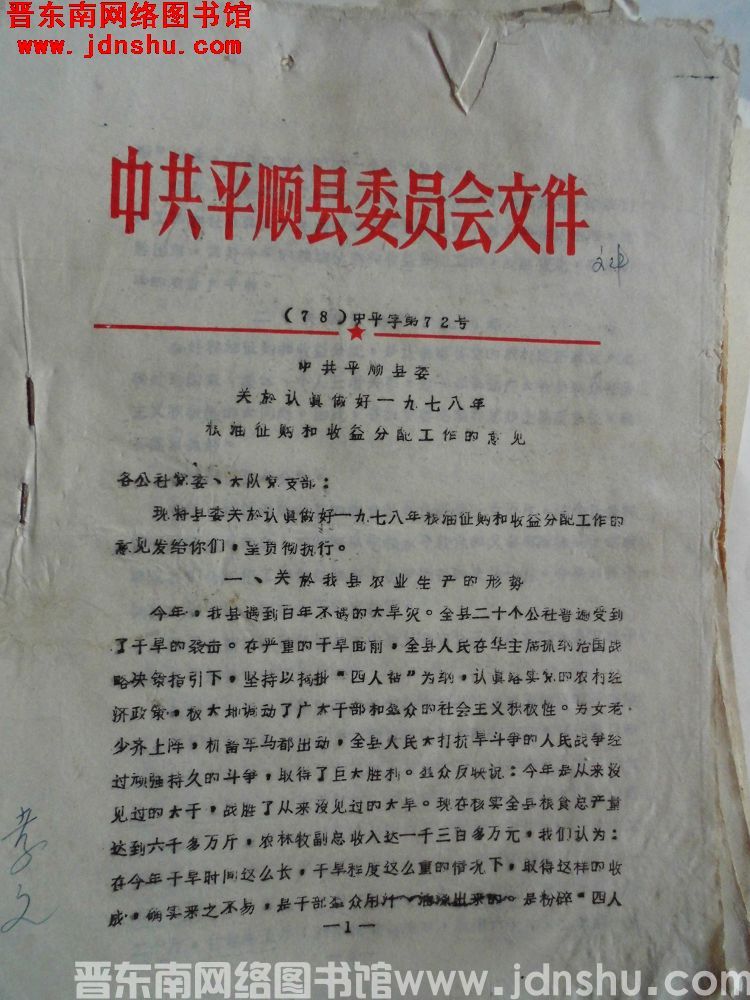 晋东南网络图书馆
www.jdnshu.com
中共平顺县委员会文件
(78)中平字第72号
中共平顺县委
关于认真做好一九七八年
粮油征购和收益分配工作的意见
各公社党委、大队党支部：
现将县委关于认真做好一九七八年粮油征购和收益分配工作的
意见发给你们，望贯彻执行。
一、关于我县农业生产的形势
今年，我县遇到百年不遇的大旱灾。全县二十个公社普遍受到
了干旱的袭击。在严重的干旱面前，全县人民在华主席抓纲治国战
略决策指引下，坚持以揭批“四人帮”为纲，认真落实党的农村经
济政策，极大地调动了广大干部和群众的社会主义积极性。男女老
少齐上阵，机畜车马都出动，全县人民大打抗旱斗争的人民战争经
过顽强持久的斗争，取得了巨大胜利。群众反映说：今年是从来没
见过的大干，战胜了从来没见过的大旱。现在核实全县粮食总产量
达到六千多万斤，农林牧副总收入达一千三百多万元，我们认为：
在今年干旱时间这么长，干旱程度这么重的情况下，取得这样的收
成，确实来之不易，是干部群众用汗 出来的。是粉碎“四人
—1—
晋东南网络图书馆www.jdnshu.com